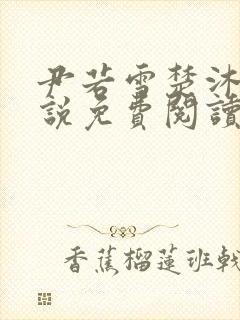 尹若雪楚沐
說免費閱讀
香蕉榴蓮班戟